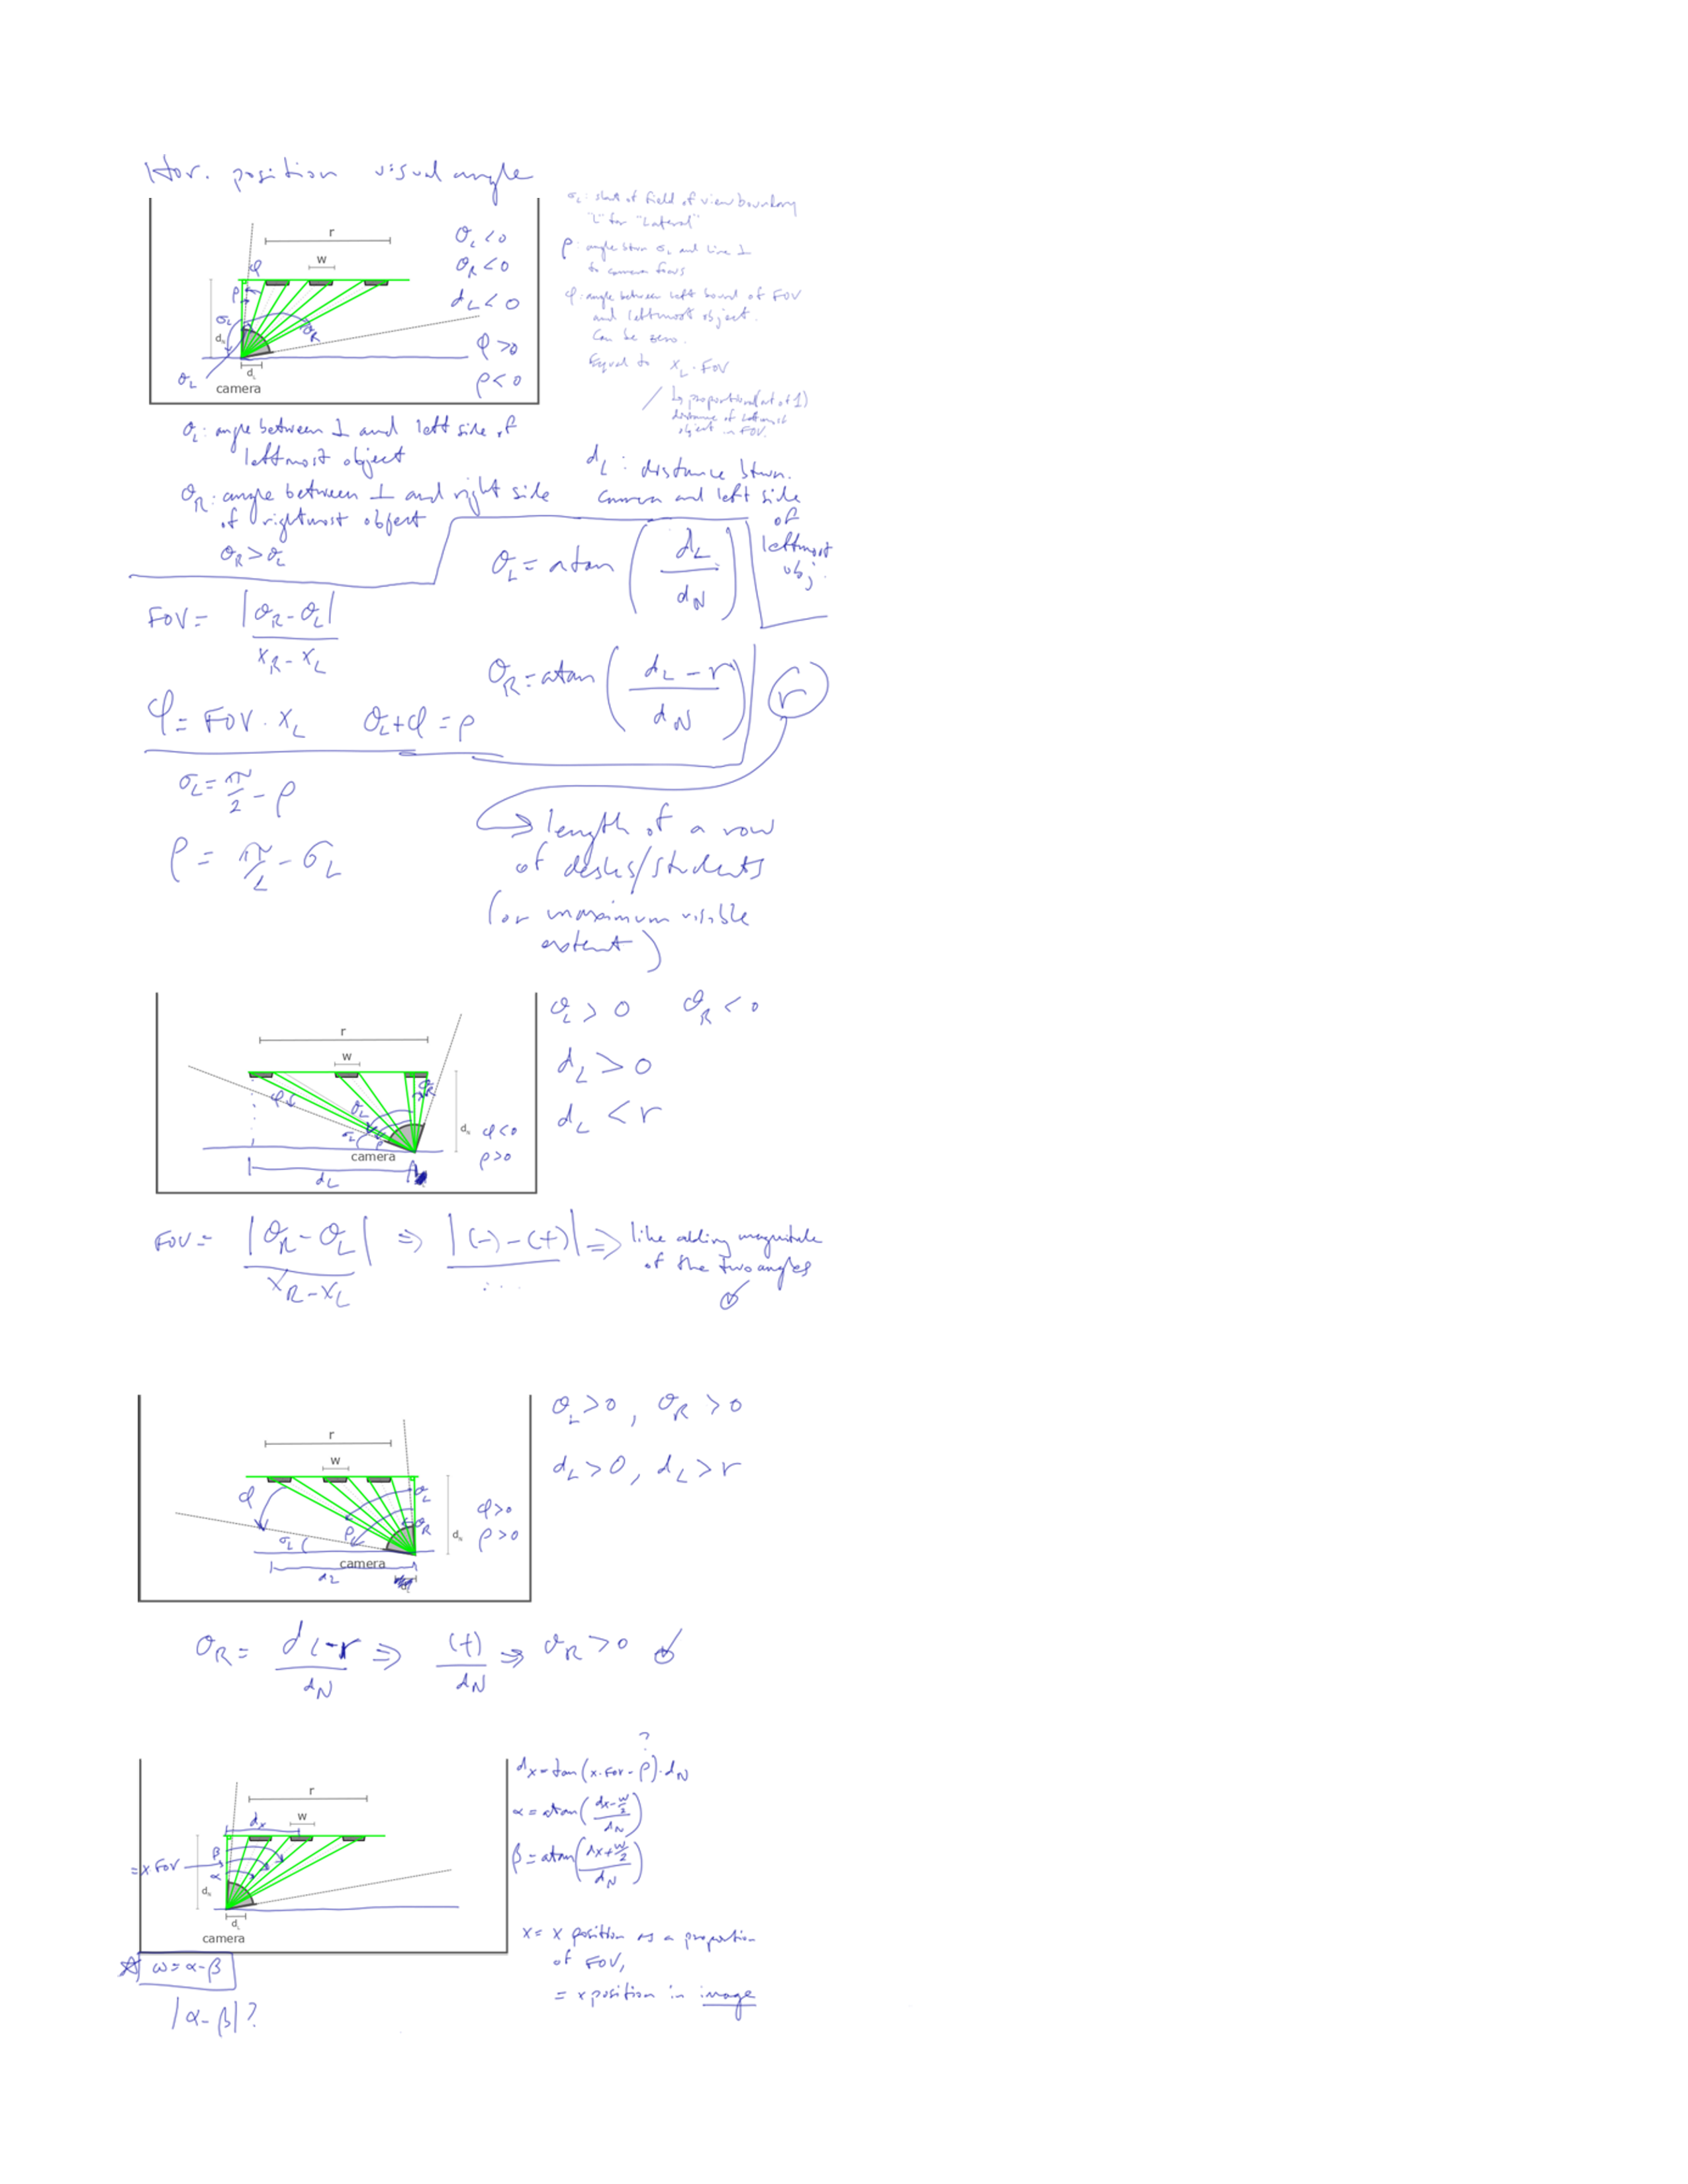 Hor. position visual angle
r
w
φ
ρ
σL
dN
θR
dL
θL
camera
θL < 0
θR < 0
dL < 0
φ > 0
ρ < 0
σL: start of field of view boundary
"L" for "Lateral"
ρ: angle btwn σL and line ⊥
to camera focus
φ: angle between left bound of FOV
and leftmost object.
Can be zero.
Equal to xL · FOV
by proportional (out of 1)
distance of leftmost
object in FOV.
θL: angle between ⊥ and left side of
leftmost object
θR: angle between ⊥ and right side
of rightmost object
θR > θL
dL: distance btwn.
camera and left side
of
leftmost
obj.
θL = atan (dL / dN)
FOV = |θR - θL| / xR - xL
θR = atan (dL - r / dN)
r
φ = FOV · xL θL + φ = ρ
σL = π/2 - ρ
ρ = π/2 - σL
length of a row
of desks/students
(or maximum visible
extent)
r
w
φ
θL
θR
σL
ρ
dN
camera
dL
φ < 0
ρ > 0
θL > 0 θR < 0
dL > 0
dL < r
FOV = |θR - θL| / xR - xL ⇒ |(-) - (+)| / .... ⇒ like adding magnitude
of the two angles
r
w
φ
θL
ρ
θR
σL
dN
camera
dL
φ > 0
ρ > 0
θL > 0, θR > 0
dL > 0, dL > r
θR = dL - r / dN ⇒ (+) / dN ⇒ θR > 0
r
dx
w
β
= x FOV
α
dN
dL
camera
?
dx = tan(x·FOV - ρ)·dN
α = atan(dx - w/2 / dN)
β = atan(dx + w/2 / dN)
x = x position as a proportion
of FOV,
= x position in image
ω = α - β
|α - β|?